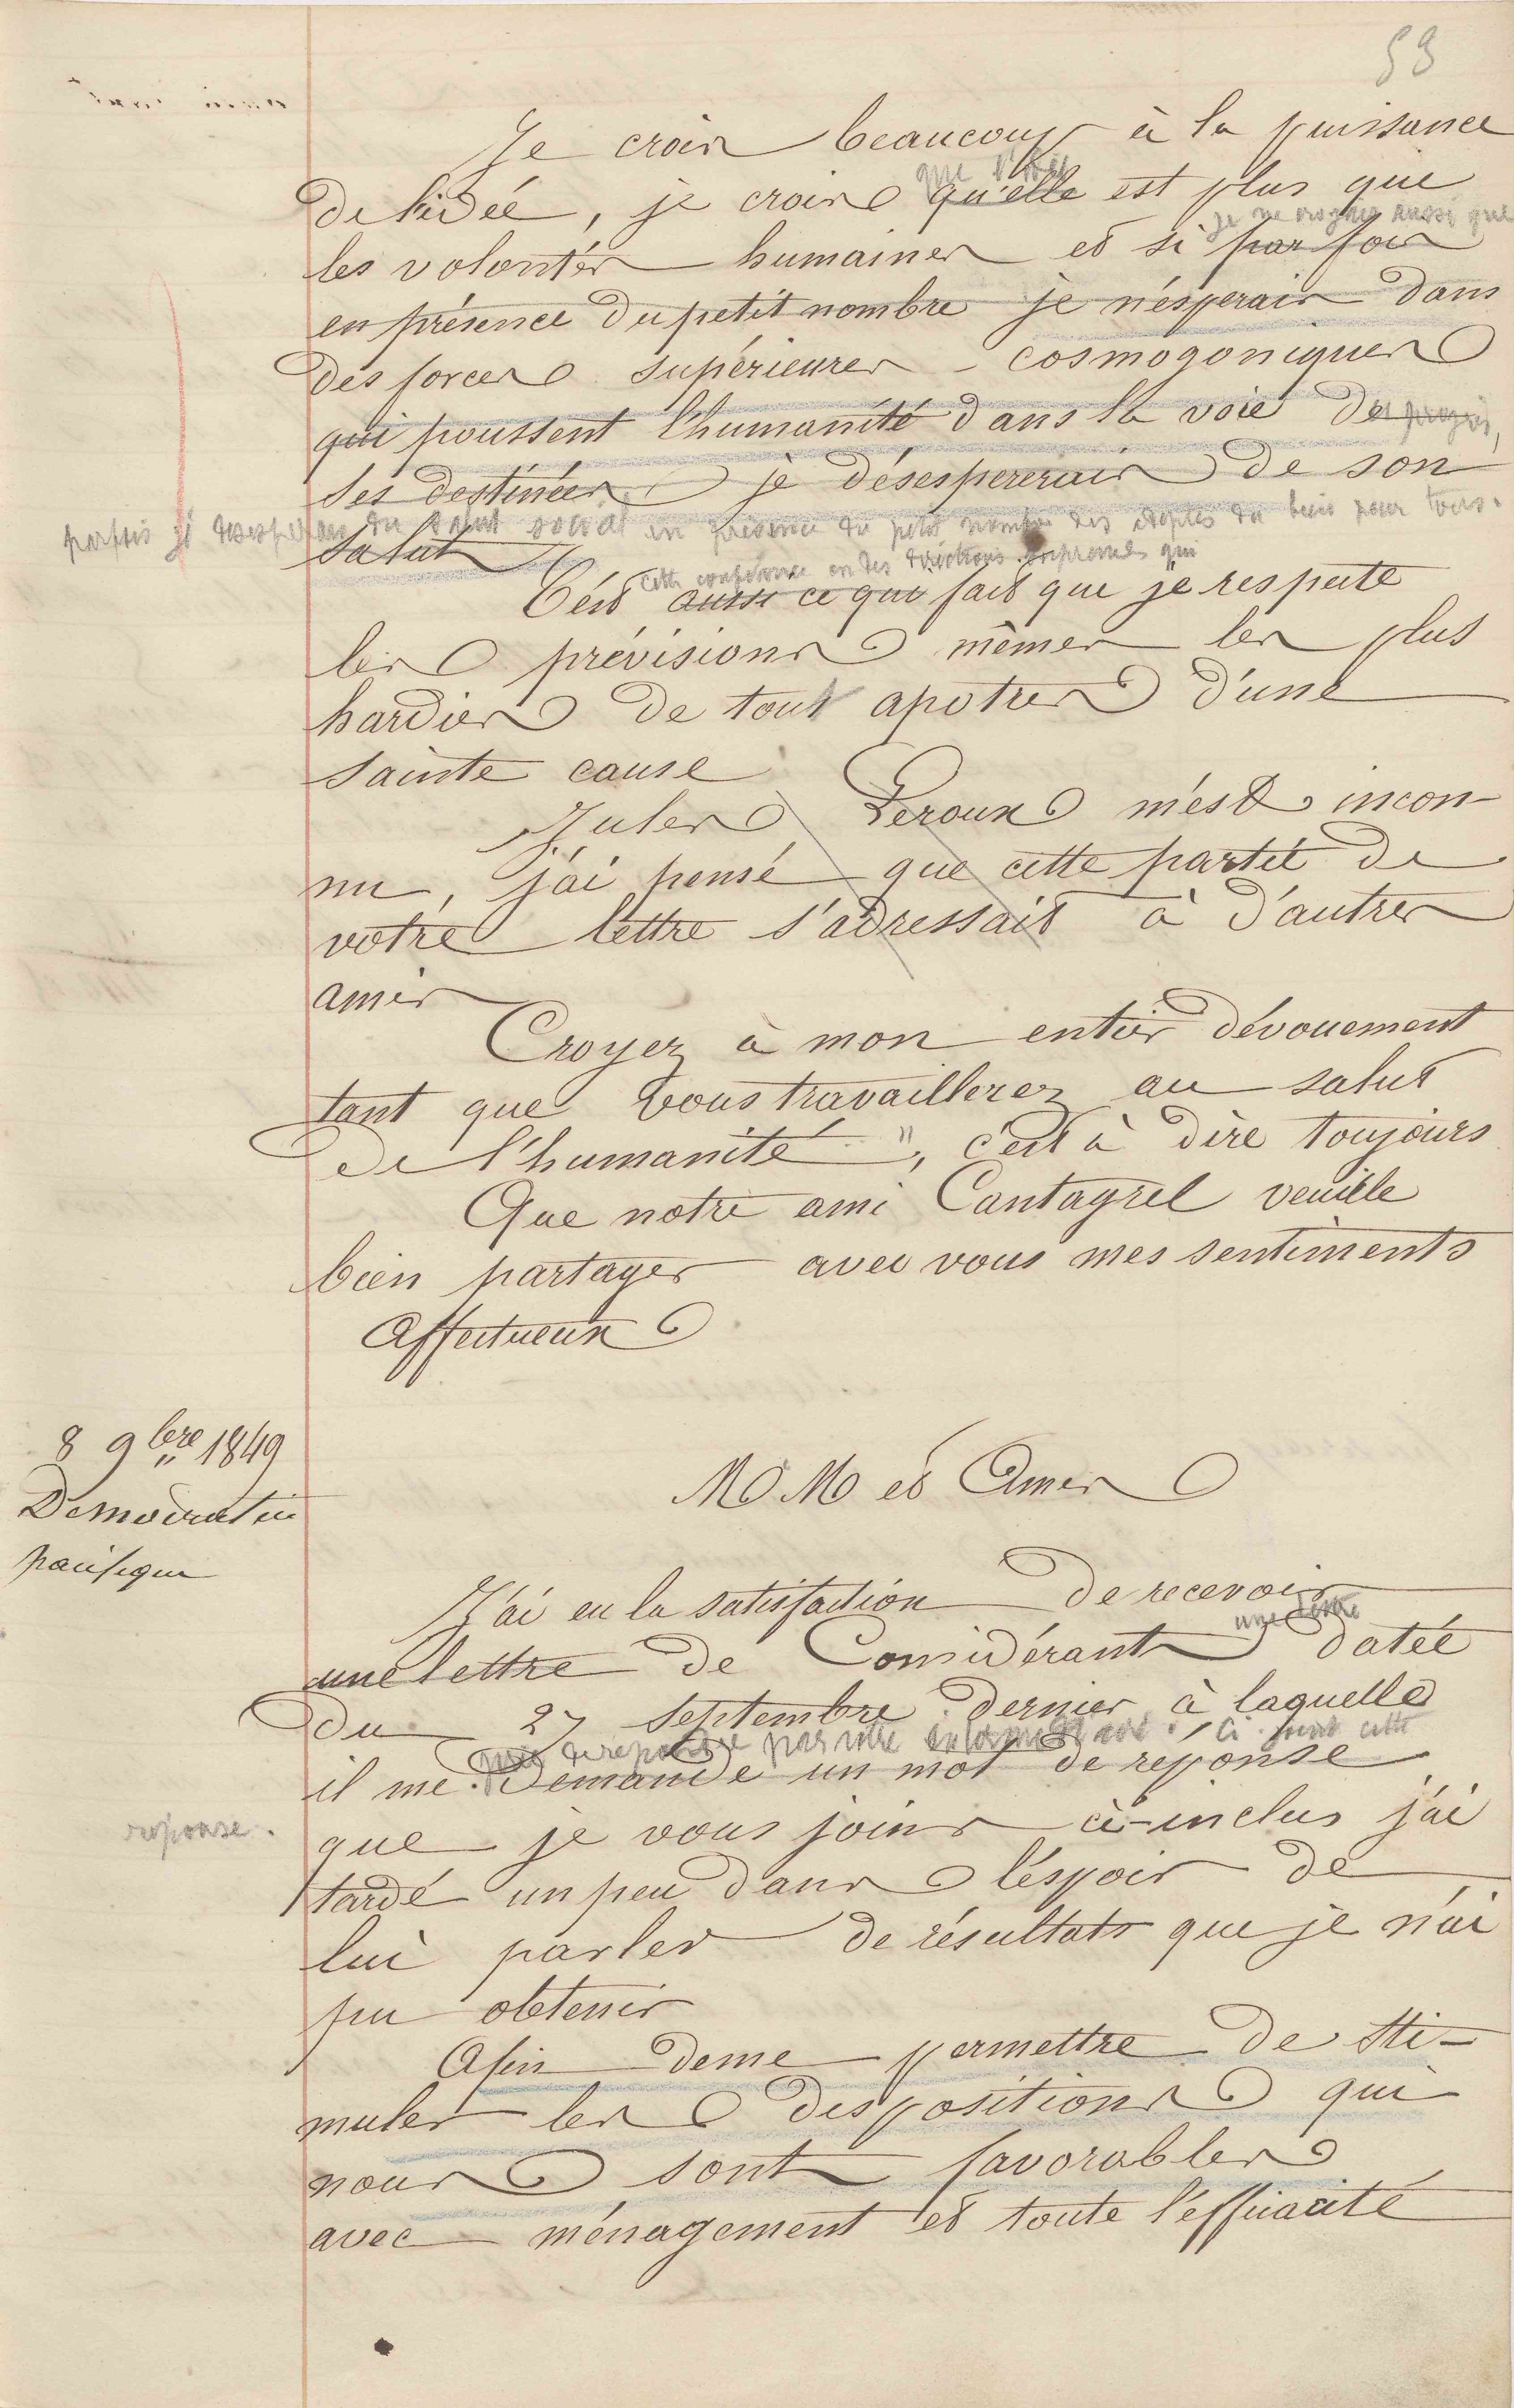 59
Je crois beaucoup à la puissance
que l'idée
de l'idée, je crois qu'elle est plus que
je ne croyais aussi que
les volontés humaines et si par fois
en présence du petit nombre je n'espérais dans
des forces supérieures cosmogoniques
qui poussent l'humanité dans la voie de progrès,
ses destinées je désespererais de son
parfois je desespérais du salut social en présence du petit nombre des adeptes du bien pour tous.
salut
cette confiance en des directions suprêmes qui
C'est aussi ce qui fait que je respecte
les prévisions mêmes les plus
hardies de tout apotres d'une
sainte cause
Jules Leroux m'est incon-
nu, j'ai pensé que cette partie de
votre lettre s'adressait à d'autres
amis
Croyez à mon entier dévouement
tant que vous travaillerez au salut
de l'humanité", c'est à dire toujours
Que notre ami Cantagrel veuille
bien partager avec vous mes sentiments
affectueux
8 9bre 1849
Démocratie
pacifique
M M et Amis
J'ai eu la satisfaction de recevoir
une lettre
une lettre de Considérant datée
du 27 septembre dernier à laquelle
de répondre par votre ci joint cette
il me demande un mot de réponse
réponse.
que je vous joins ci-inclus j'ai
tardé un peu dans l'espoir de
lui parler de résultats que je n'ai
pu obtenir
Afin de me permettre de sti-
muler les dispositions qui
nous sont favorables
avec ménagement et toute l'efficacité